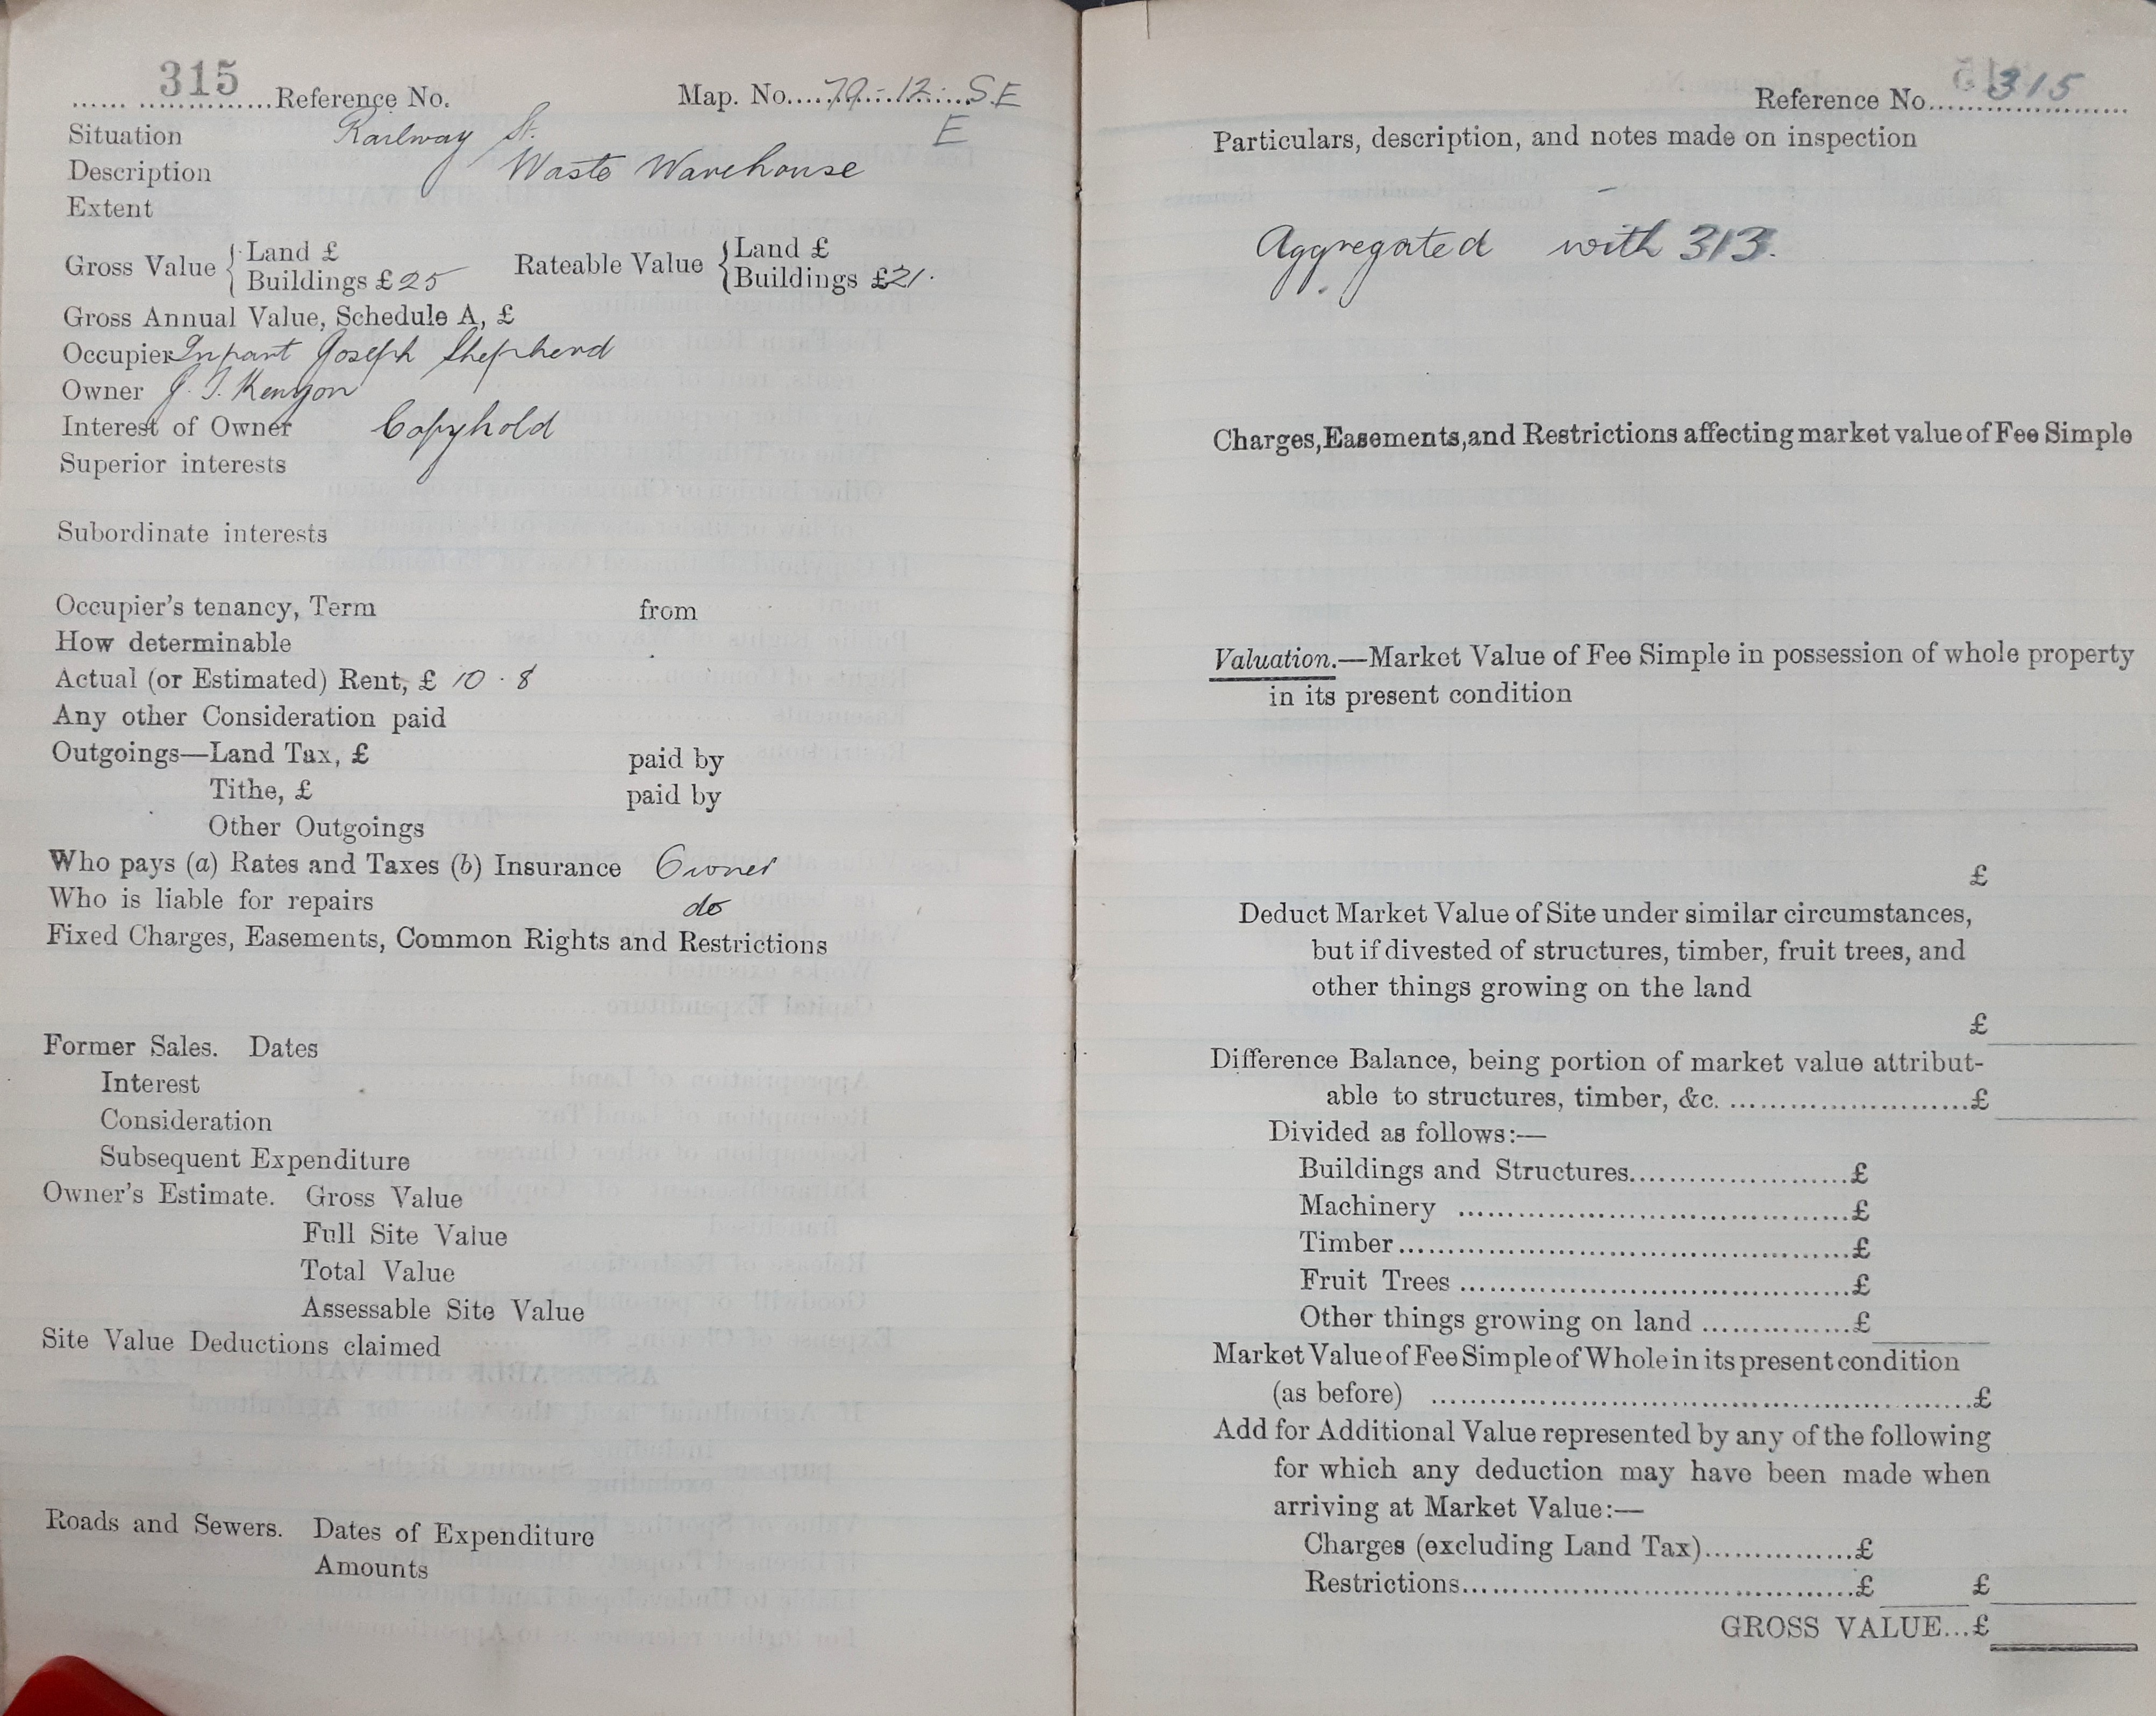 315 Reference No. Map. No. 79-12: S.E
Situation Railway St. E
Description Waste Warehouse
Extent
Gross Value { Land £
Buildings £25
Rateable Value { Land £
Buildings £21.
Gross Annual Value, Schedule A, £
Occupier In part Joseph Shepherd
Owner J. T. Kenyon
Interest of Owner Copyhold
Superior interests
Subordinate interests
Occupier's tenancy, Term from
How determinable
Actual (or Estimated) Rent, £ 10 . 8
Any other Consideration paid
Outgoings—Land Tax, £ paid by
Tithe, £ paid by
Other Outgoings
Who pays (a) Rates and Taxes (b) Insurance Owner
Who is liable for repairs do
Fixed Charges, Easements, Common Rights and Restrictions
Former Sales. Dates
Interest
Consideration
Subsequent Expenditure
Owner's Estimate. Gross Value
Full Site Value
Total Value
Assessable Site Value
Site Value Deductions claimed
Roads and Sewers. Dates of Expenditure
Amounts
Reference No. 315
Particulars, description, and notes made on inspection
Aggregated with 313.
Charges, Easements, and Restrictions affecting market value of Fee Simple
Valuation.—Market Value of Fee Simple in possession of whole property
in its present condition
£
Deduct Market Value of Site under similar circumstances,
but if divested of structures, timber, fruit trees, and
other things growing on the land
£
Difference Balance, being portion of market value attribut-
able to structures, timber, &c. ........................£
Divided as follows:—
Buildings and Structures......................£
Machinery ......................................£
Timber.............................................£
Fruit Trees ......................................£
Other things growing on land ...............£
Market Value of Fee Simple of Whole in its present condition
(as before) .....................................................£
Add for Additional Value represented by any of the following
for which any deduction may have been made when
arriving at Market Value:—
Charges (excluding Land Tax)...............£
Restrictions.......................................£ £
GROSS VALUE...£